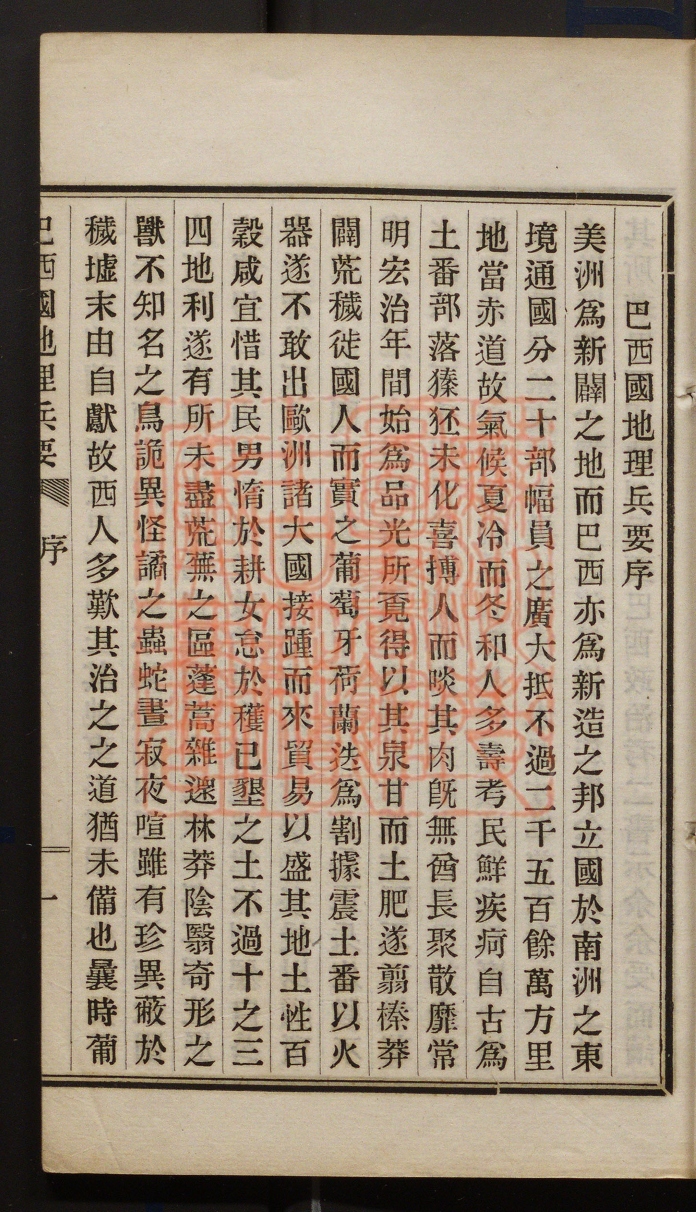 巴西國地理兵要序
美洲爲新闢之地而巴西亦爲新造之邦立國於南洲之東
境通國分二十部幅員之廣大抵不過二千五百餘萬方里
地當赤道故氣候夏冷而冬和人多壽考民鮮疾疴自古爲
土番部落獉狉未化喜摶人而啖其肉旣無酋長聚散靡常
明宏治年間始爲品光所覓得以其泉甘而土肥遂翦榛莽
闢荒穢徒國人而實之葡萄牙荷蘭迭爲割據震土番以火
器遂不敢出歐洲諸大國接踵而來貿易以盛其地土性百
穀咸宜惜其民男惰於耕女怠於穫已墾之土不過十之三
四地利遂有所未盡荒蕪之區蓬蒿雜遝林莽陰翳奇形之
獸不知名之鳥詭異怪譎之蟲蛇晝寂夜喧雖有珍異蔽於
穢墟末由自獻故西人多歎其治之之道猶未備也曩時葡
巴西國地理兵要 序 一